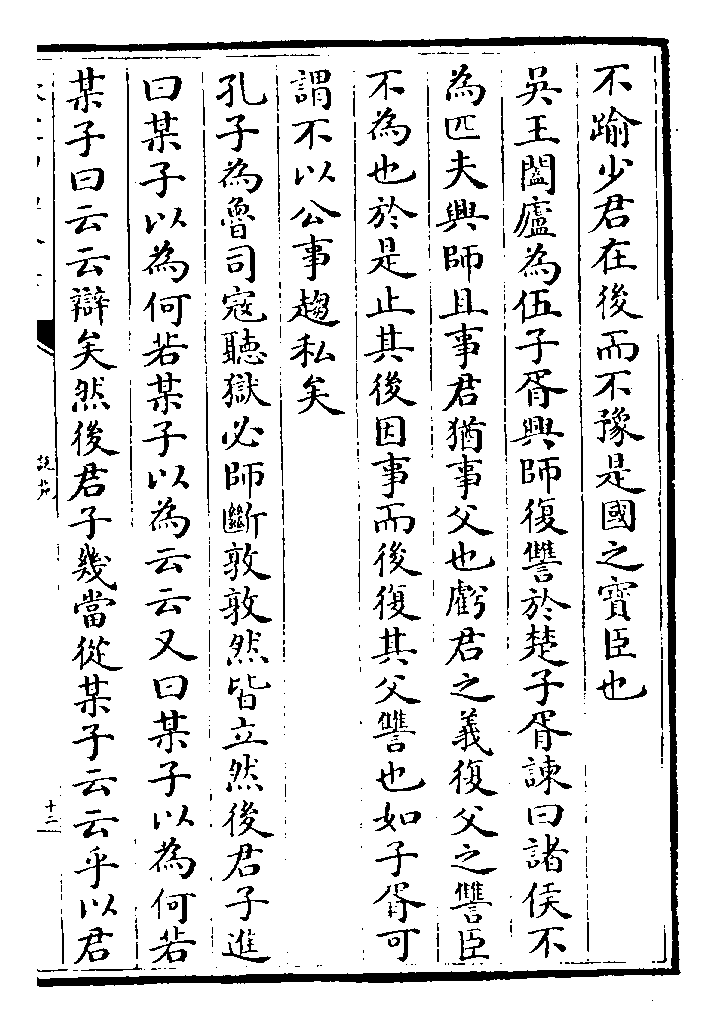 不踰少君在後而不豫是國之寳臣也
吳王闔廬為伍子胥興師復讐於楚子胥諫曰諸侯不
為匹夫興師且事君猶事父也虧君之義復父之讐臣
不為也於是止其後因事而後復其父讐也如子胥可
謂不以公事趨私矣
孔子為魯司寇聽獄必師斷敦敦然皆立然後君子進
曰某子以為何若某子以為云云又曰某子以為何若
某子曰云云辯矣然後君子幾當從某子云云乎以君
說苑
十二